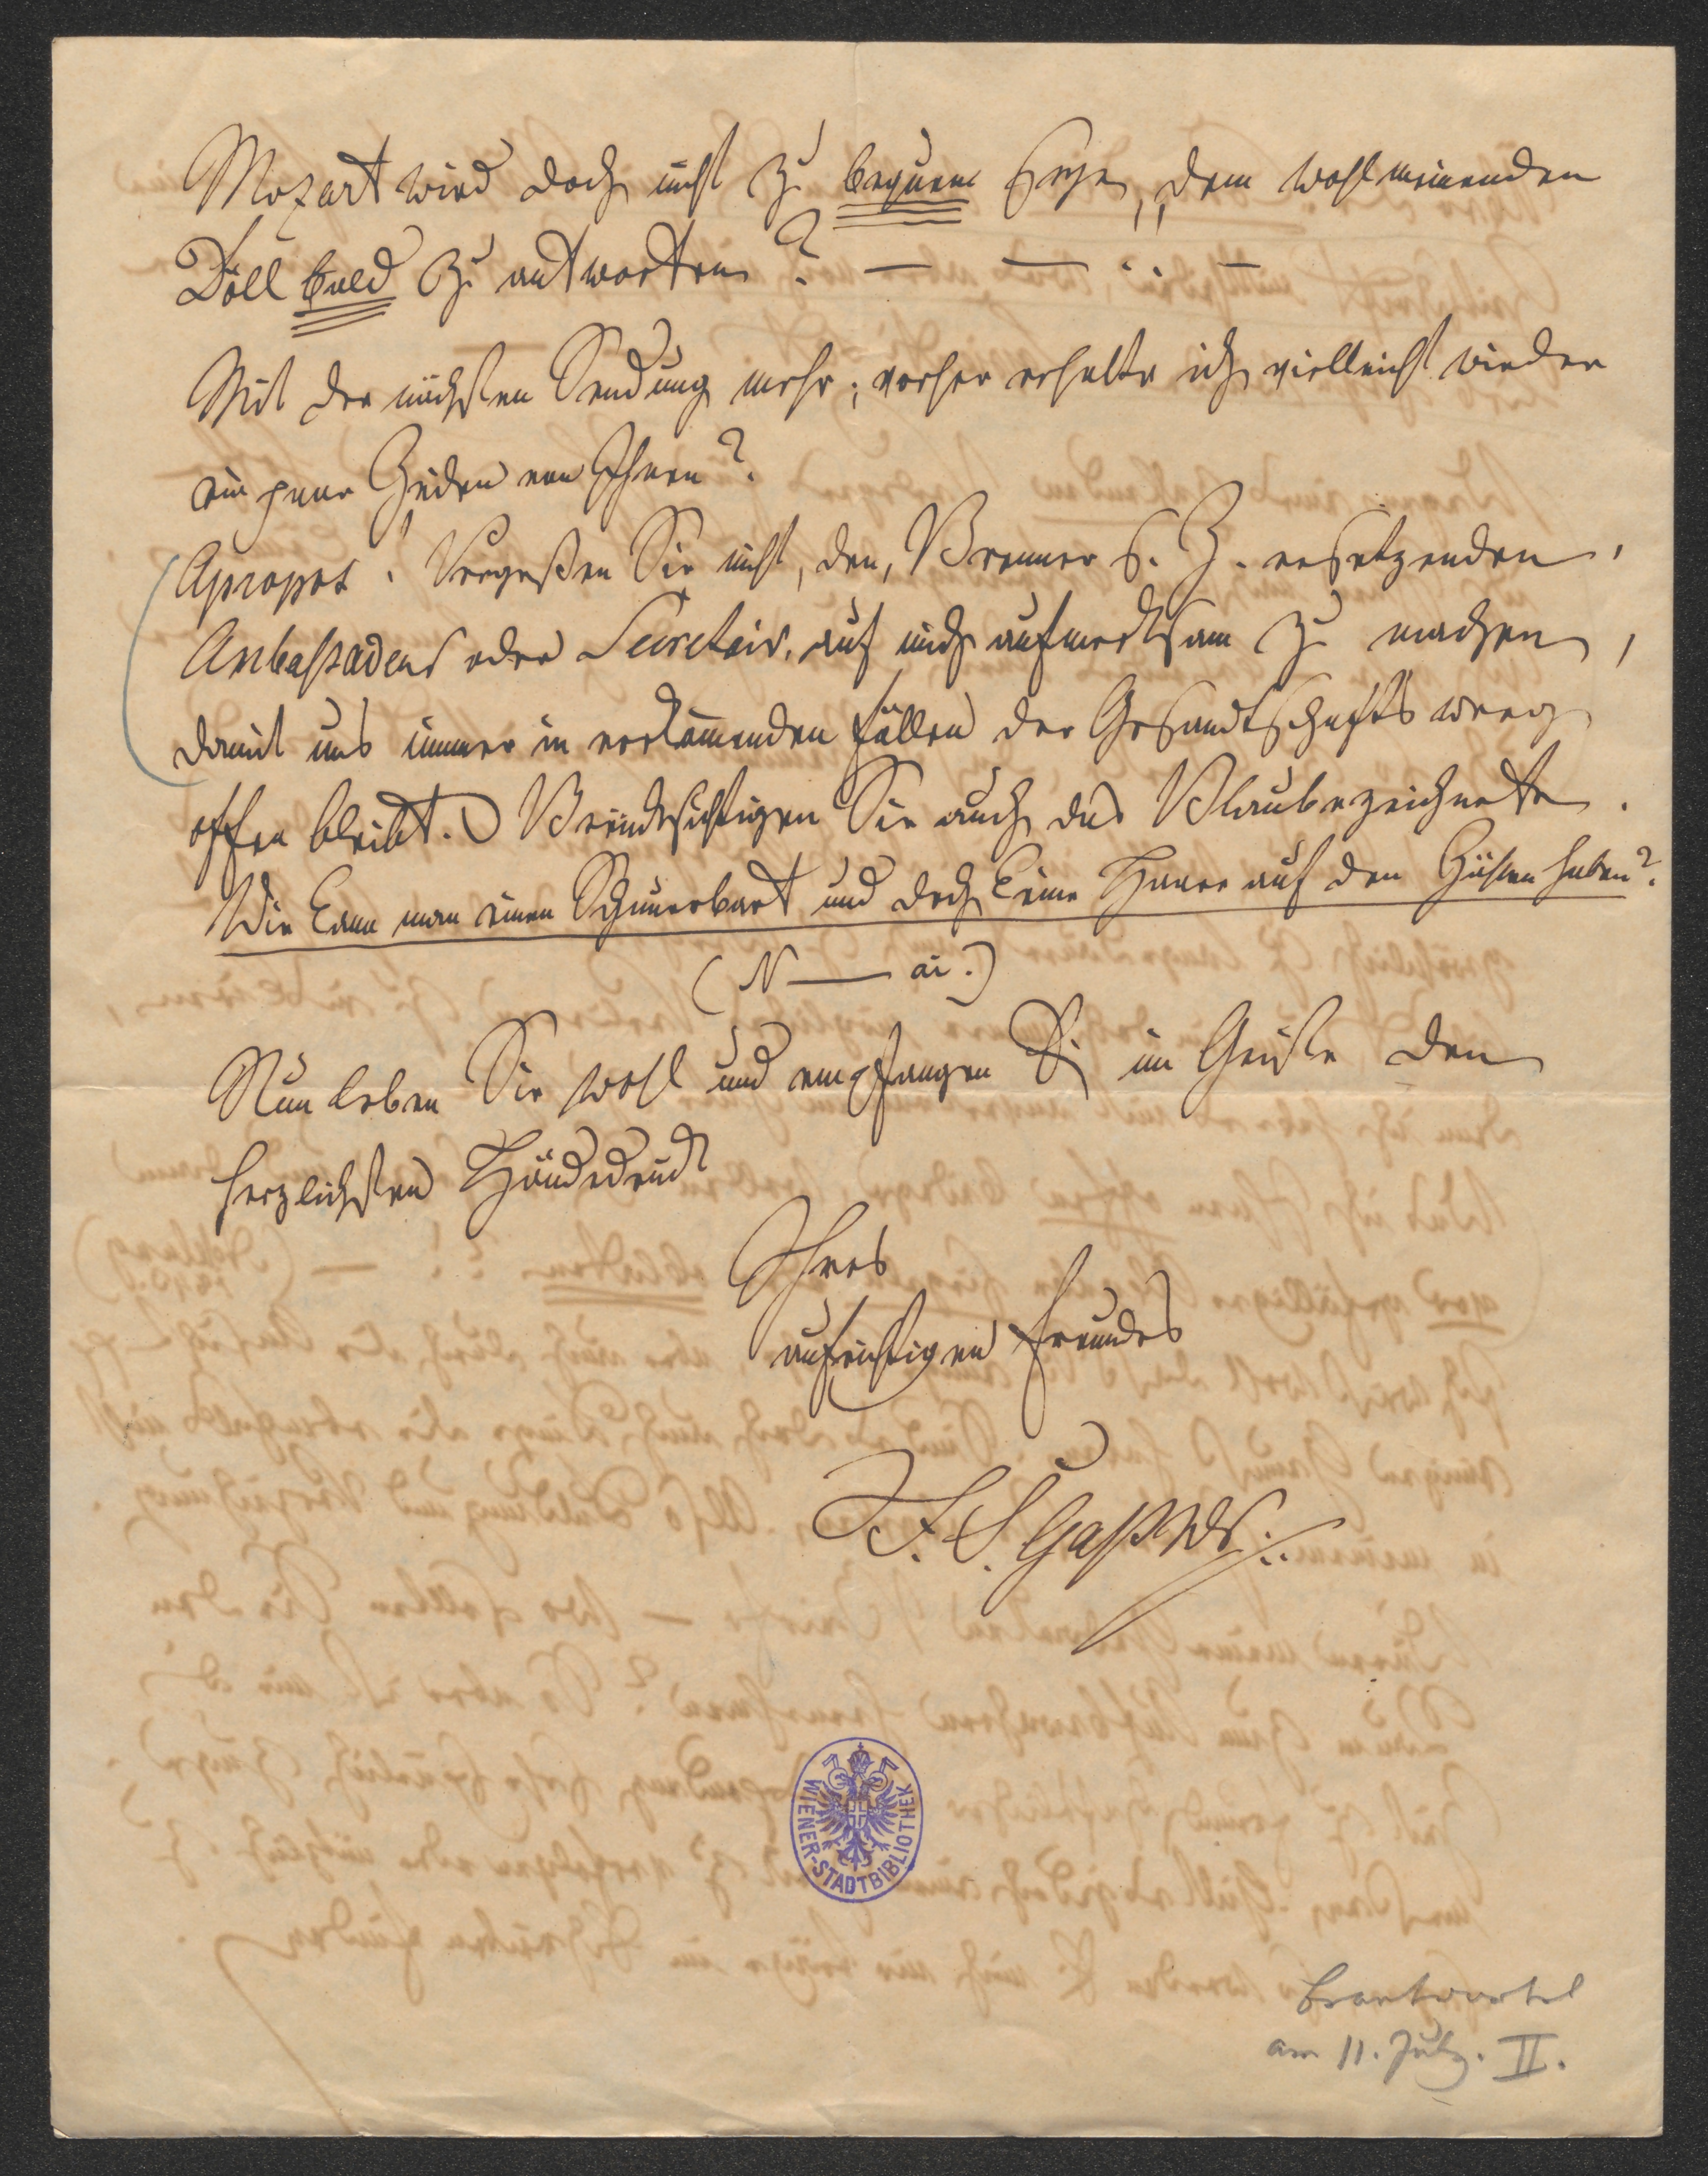 Mozart wird doch nicht zu bequem seyn, dem wohlmeinenden
Döll bald zu antworten? — — . . —
Mit der nächsten Sendung mehr; vorher erhalte ich vielleicht wieder
ein paar Zeilen von Ihnen?
Apropos! Vergeßen Sie nicht, den, Brenner s. Z. ersetzenden,
Ambaßadeur oder Secretair, auf mich aufmerksam zu machen,
damit uns immer in vorkommenden Fällen der Gesandtschaftsweeg
offen bleibt. Berücksichtigen Sie auch das Blaubezeichnete.
Wie kann man einen Schnurrbart und doch keine Haare auf den Zähnen haben?
(N — ai.)
Nun leben Sie wohl und empfangen Sie im Geiste den
herzlichsten Händedruck
Ihres
aufrichtigen Freundes
F. S. Gaßner
WIENER-STADTBIBLIOTHEK
beantwortet
am 11. July. II.